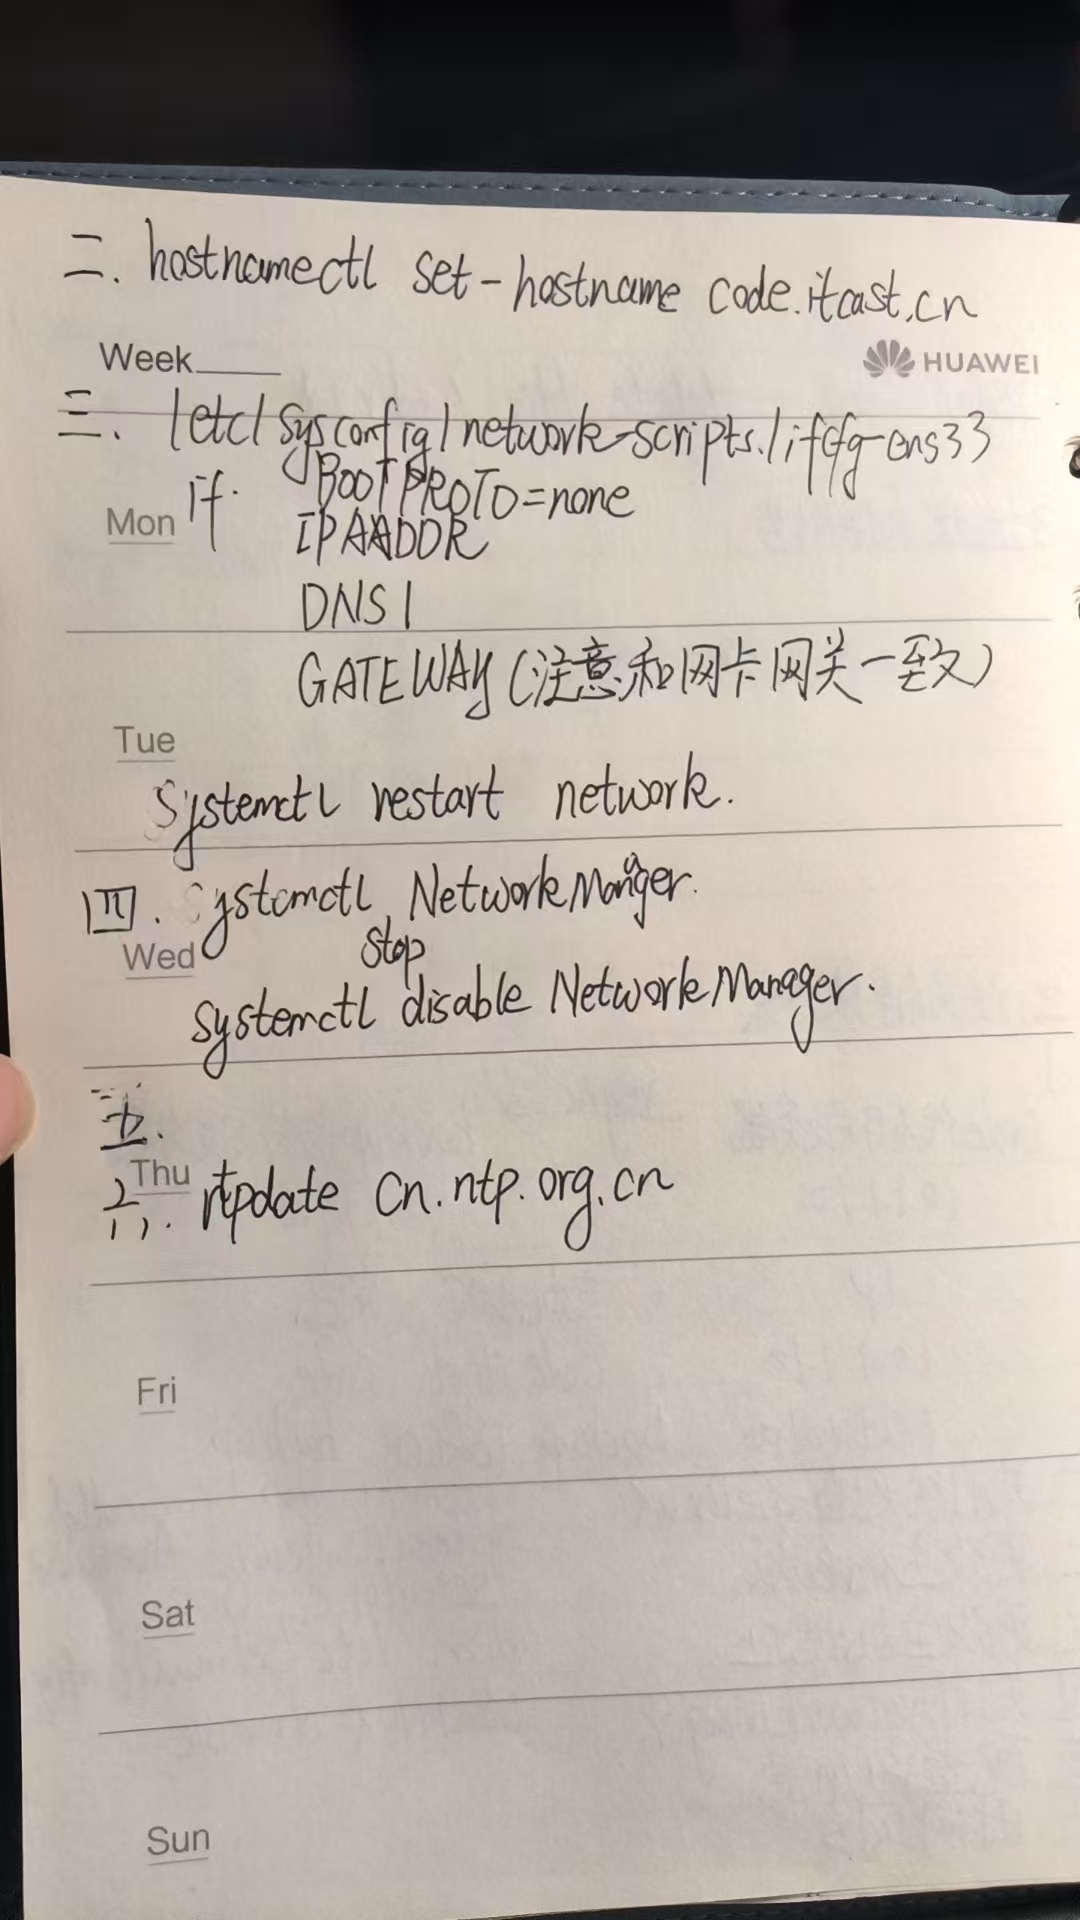 二. hostnamectl set-hostname code.itcast.cn
Week
HUAWEI
三. /etc/sysconfig/network-scripts./ifcfg-ens33
if. BOOTPROTO=none
Mon
IPAADDR
DNS1
GATEWAY(注意和网卡网关一致)
Tue
Systemctl restart network.
四. Systemctl stop NetworkManager.
Wed
systemctl disable NetworkManager.
五.
Thu
六. ntpdate cn.ntp.org.cn
Fri
Sat
Sun